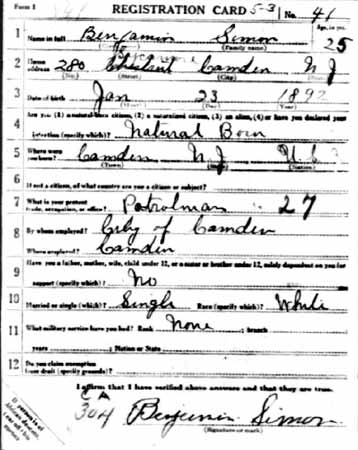 Form 1
REGISTRATION CARD 5-3 No. 41
1 Name in full Benjamin Simon Age, in yrs. 25
(Family name)
2 Home address 280 Chestnut Camden N J
(No.) (Street) (City) (State)
3 Date of birth Jan 23 1892
(Month) (Day) (Year)
4 Are you (1) a natural-born citizen, (2) a naturalized citizen, (3) an alien, (4) or have you declared your
intention (specify which)? Natural Born
5 Where were you born? Camden N J U S
(Town) (State) (Nation)
6 If not a citizen, of what country are you a citizen or subject?
7 What is your present trade, occupation, or office? Patrolman 27
8 By whom employed? City of Camden
Where employed? Camden
9 Have you a father, mother, wife, child under 12, or a sister or brother under 12, solely dependent on you for
support (specify which)? No
10 Married or single (which)? Single Race (specify which)? White
11 What military service have you had? Rank None ; branch
years ; Nation or State
12 Do you claim exemption from draft (specify grounds)?
I affirm that I have verified above answers and that they are true.
304 Benjamin Simon
(Signature or mark)
If person is of African descent,